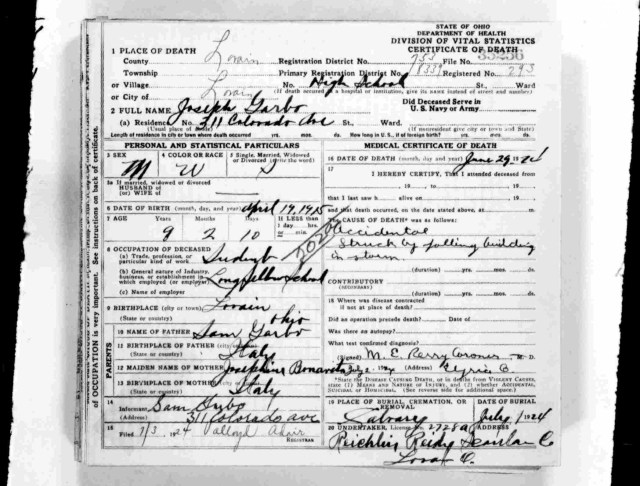 STATE OF OHIO
DEPARTMENT OF HEALTH
DIVISION OF VITAL STATISTICS
CERTIFICATE OF DEATH
1 PLACE OF DEATH
County Lorain Registration District No. 753 File No.
Township Primary Registration District No. 8339 Registered No. 293
or Village No. High School St., Ward
or City of Lorain (If death occurred in a hospital or institution, give its name instead of street and number)
2 FULL NAME Joseph Garbo Did Deceased Serve in U. S. Navy or Army.
(a) Residence No. 311 Colorado Ave St., Ward
(Usual place of abode) (If nonresident give city or town and State)
Length of residence in city or town where death occurred yrs. mos. ds. How long in U. S., if of foreign birth? yrs. mos. ds.
PERSONAL AND STATISTICAL PARTICULARS
3 SEX M 4 COLOR OR RACE W 5 Single, Married, Widowed or Divorced (write the word) S
5a If married, widowed or divorced
HUSBAND of
(or) WIFE of
6 DATE OF BIRTH (month, day, and year) April 19, 1915
7 AGE Years Months Days If LESS than 1 day hrs. or min.
9 2 10
8 OCCUPATION OF DECEASED
(a) Trade, profession, or particular kind of work Student
(b) General nature of industry, business, or establishment in which employed (or employer) Longfellow School
(c) Name of employer
9 BIRTHPLACE (city or town) Lorain
(State or country) Ohio
PARENTS
10 NAME OF FATHER Sam Garbo
11 BIRTHPLACE OF FATHER (city or town)
(State or country) Italy
12 MAIDEN NAME OF MOTHER Josephine
13 BIRTHPLACE OF MOTHER (city or town)
(State or country) Italy
14 Informant Sam Garbo
(Address) 311 Colorado ave
15 Filed 7/3 1924
REGISTRAR
MEDICAL CERTIFICATE OF DEATH
16 DATE OF DEATH (month, day and year) June 29 1924
17 I HEREBY CERTIFY, That I attended deceased from
, 19 , to , 19
that I last saw h alive on , 19
and that death occurred, on the date stated above, at m.
The CAUSE OF DEATH* was as follows:
Accidental
Struck by falling building
in storm.
(duration) yrs. mos. ds.
CONTRIBUTORY
(SECONDARY)
(duration) yrs. mos. ds.
18 Where was disease contracted
if not at place of death?
Did an operation precede death? Date of
Was there an autopsy?
What test confirmed diagnosis?
(Signed) M. E. Perry Coroner M. D.
July 2, 1924 (Address) Elyria O.
*State the Disease Causing Death, or in deaths from Violent Causes, state (1) Means and Nature of Injury, and (2) whether Accidental, Suicidal, or Homicidal. (See reverse side for additional space.)
19 PLACE OF BURIAL, CREMATION, OR REMOVAL DATE OF BURIAL
Calvary July 1 1924
20 UNDERTAKER, License No. 2728a ADDRESS
Reichlin Reidy Scanlan Co
Lorain O.
OF OCCUPATION is very important. See instructions on back of certificate.